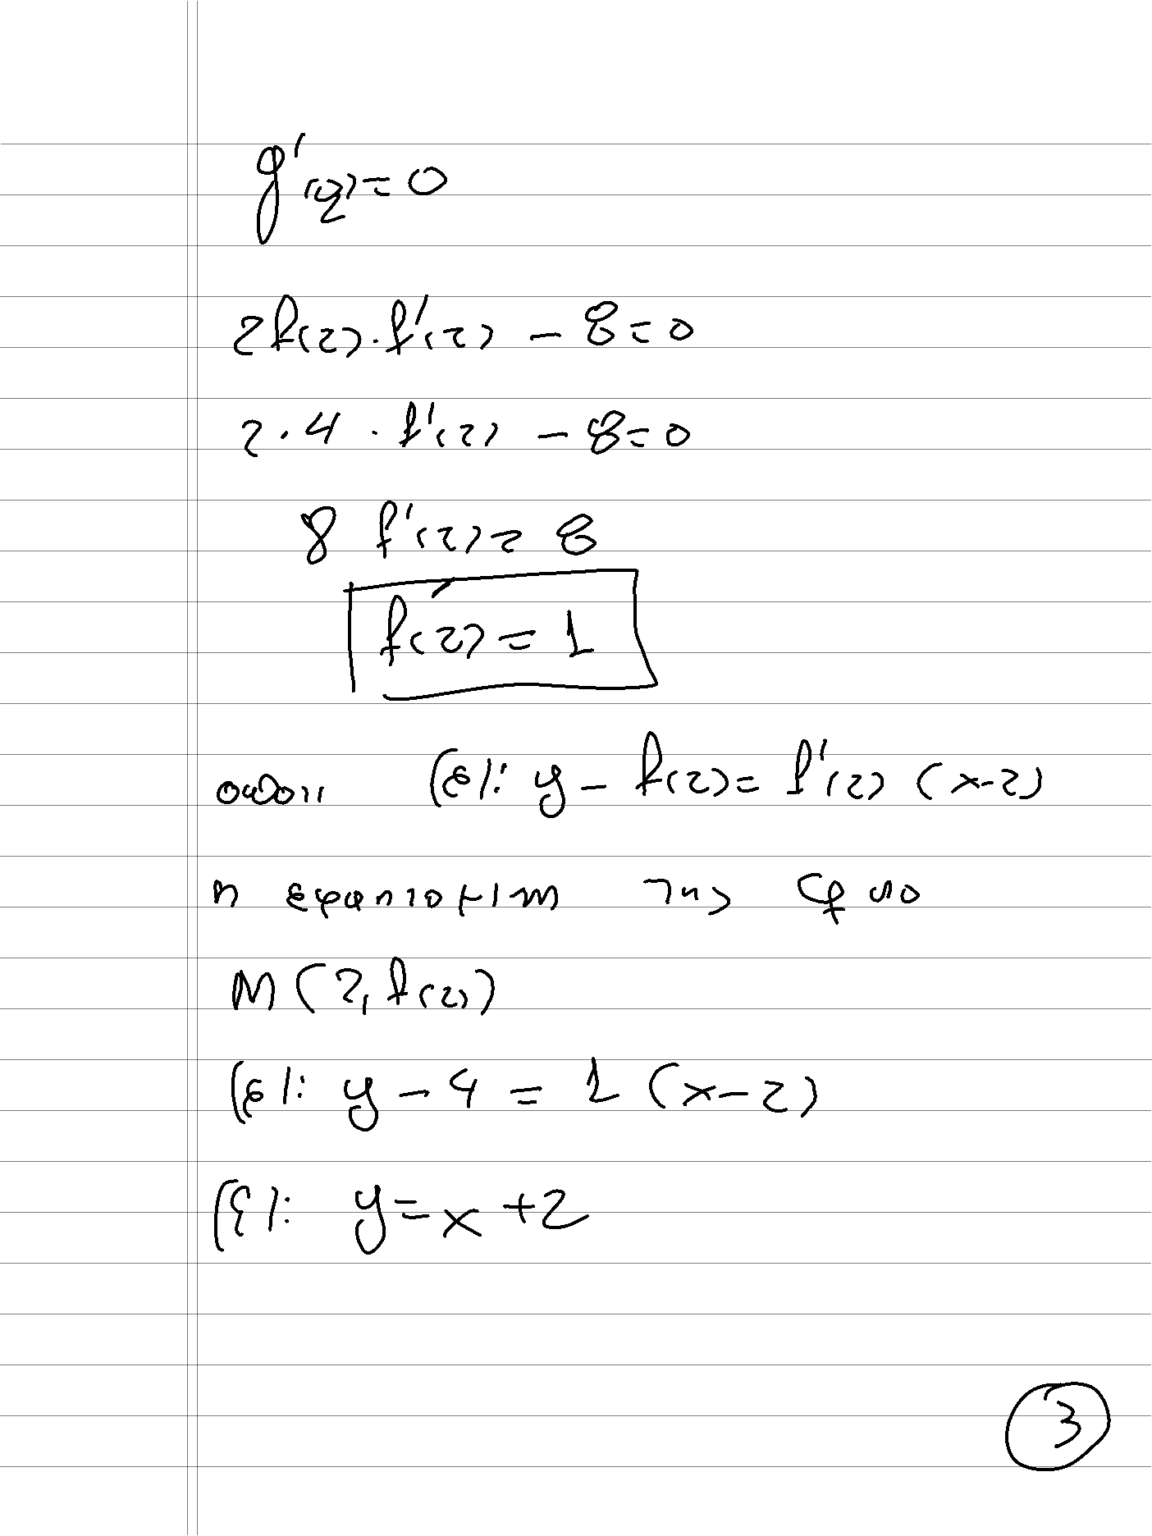 g'(2)=0
2f(2)·f'(2) - 8=0
2·4·f'(2) - 8=0
8 f'(2)= 8
f'(2)=1
οπότε (ε): y - f(2)= f'(2) (x-2)
η εφαπτομένη της Cf στο
M(2, f(2))
(ε): y - 4 = 1 (x-2)
(ε): y=x+2
3